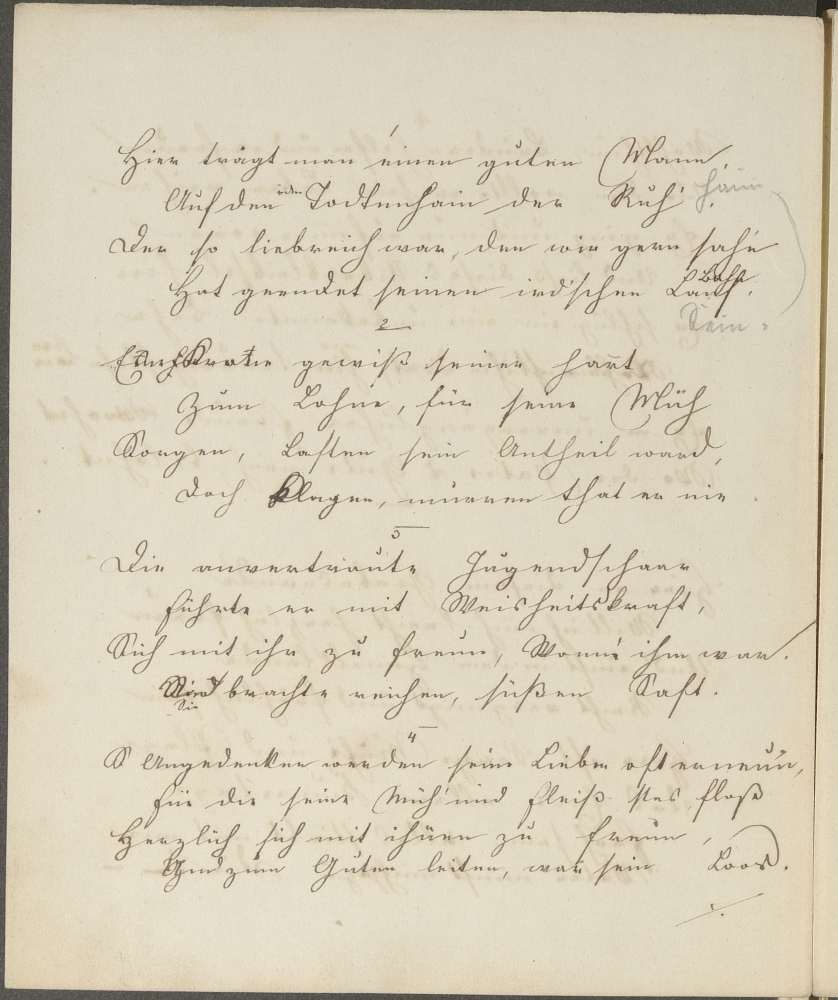 1
Hier trägt man einen guten Mann,
Auf den oden Todtenhain der Ruh'. Hain
Der so liebreich war, den wir gern sah'n
Hat geendet seinen ird'schen Lauf. Bahn
Sein.
2
gewiß seiner harrt
Zum Lohne, für seine Müh
Sorgen, Lasten sein Antheil ward,
Doch Klagen, murren that er nie.
3
Die anvertraute Jugendschaar
führte er mit Weisheitskraft,
Sich mit ihr zu freun, Wonn' ihm war.
Sie brachte reichen, süßen Saft.
4
S Angedenken werden seine Lieben oft erneu'n,
für die seine Müh' und Fleiß stes floß
Herzlich sich mit ihnen zu freun,
Und zum Guten leiten, war sein Loos.